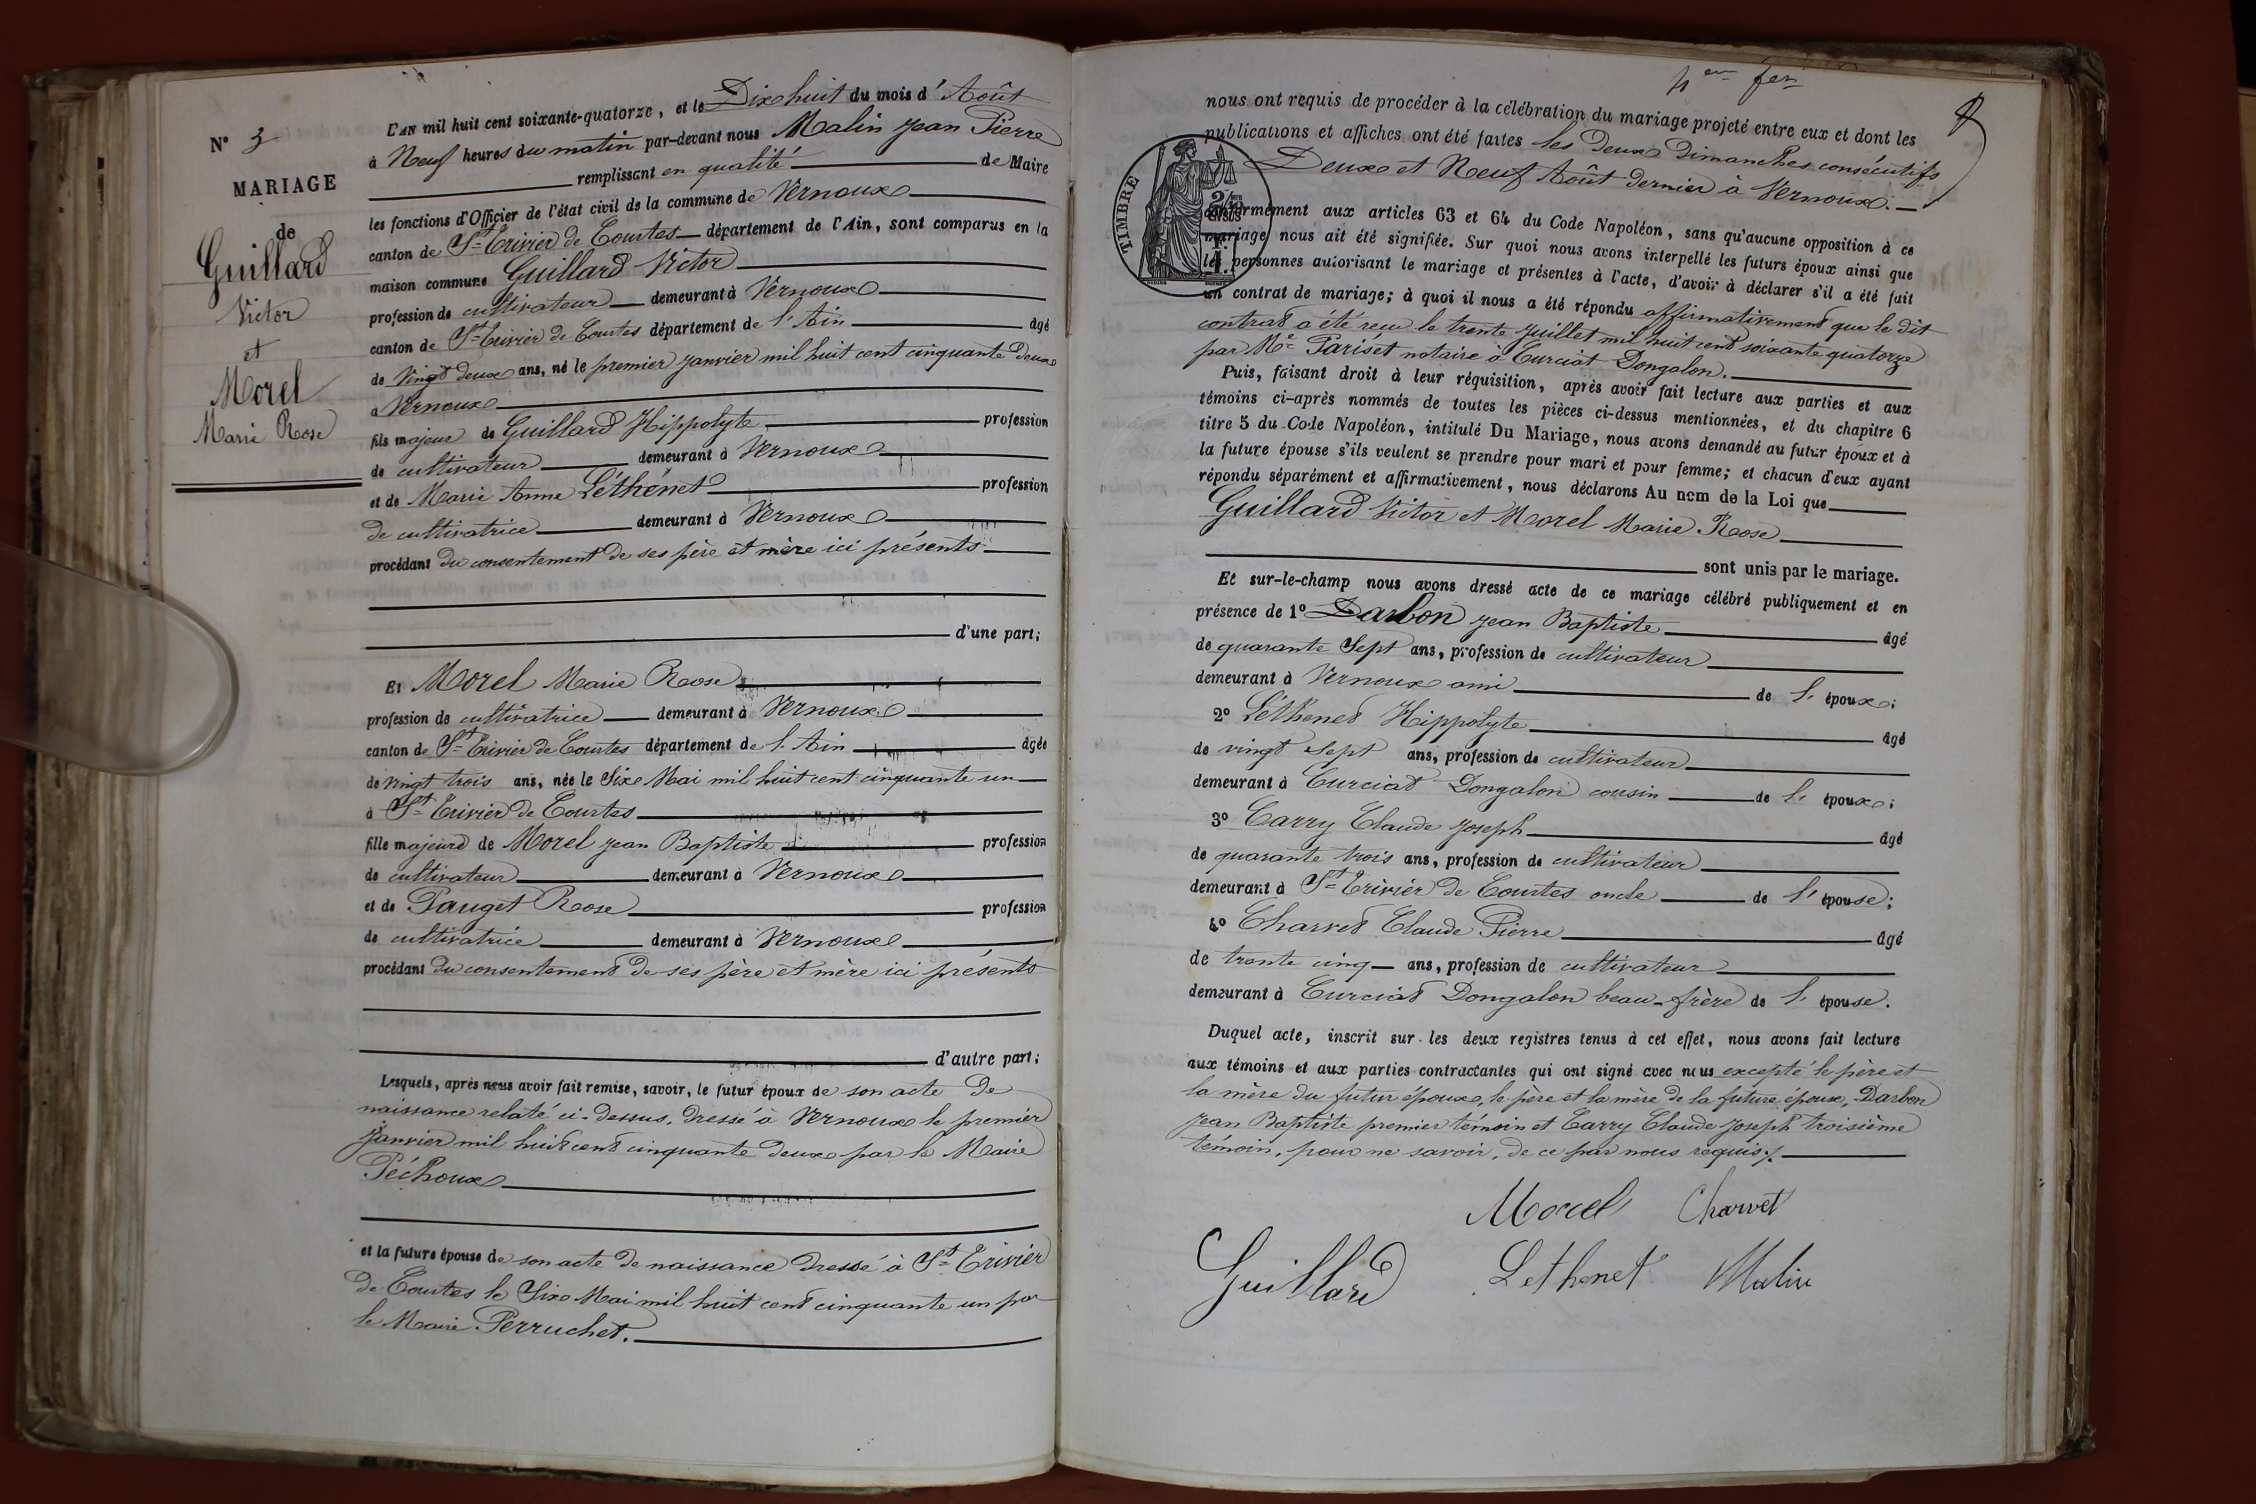 N° 3
MARIAGE
de
Guillard
Victor
et
Morel
Marie Rose
L'AN mil huit cent soixante-quatorze, et le Dix huit du mois d'Août
à Neuf heures du matin par-devant nous Malin Jean Pierre
remplissant en qualité de Maire
les fonctions d'Officier de l'état civil de la commune de Vernoux
canton de St Trivier de Courtes département de l'Ain, sont comparus en la
maison commune Guillard Victor
profession de cultivateur demeurant à Vernoux
canton de St Trivier de Courtes département de l'Ain âgé
de Vingt deux ans, né le premier Janvier mil huit cent cinquante deux
à Vernoux
fils majeur de Guillard Hippolyte profession
de cultivateur demeurant à Vernoux
et de Marie Anne Léthenet profession
de cultivatrice demeurant à Vernoux
procédant du consentement de ses père et mère ici présents
d'une part;
Et Morel Marie Rose
profession de cultivatrice demeurant à Vernoux
canton de St Trivier de Courtes département de l'Ain âgée
de vingt trois ans, née le Six Mai mil huit cent cinquante un
à St Trivier de Courtes
fille majeure de Morel Jean Baptiste profession
de cultivateur demeurant à Vernoux
et de Pauget Rose profession
de cultivatrice demeurant à Vernoux
procédant du consentement de ses père et mère ici présents
d'autre part;
Lesquels, après nous avoir fait remise, savoir, le futur époux de son acte de
naissance relaté ci-dessus, dressé à Vernoux le premier
Janvier mil huit cent cinquante deux par le Maire
Péchoux
et la future épouse de son acte de naissance dressé à St Trivier
de Courtes le Six Mai mil huit cent cinquante un par
le Maire Perruchet.
nous ont requis de procéder à la célébration du mariage projeté entre eux et dont les
publications et affiches ont été faites les Deux Dimanches consécutifs
Deux et Neuf Août dernier à Vernoux.
TIMBRE
conformément aux articles 63 et 64 du Code Napoléon, sans qu'aucune opposition à ce
mariage nous ait été signifiée. Sur quoi nous avons interpellé les futurs époux ainsi que
les personnes autorisant le mariage et présentes à l'acte, d'avoir à déclarer s'il a été fait
un contrat de mariage; à quoi il nous a été répondu affirmativement que le dit
contrat a été reçu le trente Juillet mil huit cent soixante quatorze
par Me Pariset notaire à Curciat Dongalon.
Puis, faisant droit à leur réquisition, après avoir fait lecture aux parties et aux
témoins ci-après nommés de toutes les pièces ci-dessus mentionnées, et du chapitre 6
titre 5 du Code Napoléon, intitulé Du Mariage, nous avons demandé au futur époux et à
la future épouse s'ils veulent se prendre pour mari et pour femme; et chacun d'eux ayant
répondu séparément et affirmativement, nous déclarons Au nom de la Loi que
Guillard Victor et Morel Marie Rose
sont unis par le mariage.
Et sur-le-champ nous avons dressé acte de ce mariage célébré publiquement et en
présence de 1° Darbon Jean Baptiste âgé
de quarante Sept ans, profession de cultivateur
demeurant à Vernoux ami de l'époux;
2° Léthenet Hippolyte âgé
de vingt sept ans, profession de cultivateur
demeurant à Curciat Dongalon cousin de l'époux;
3° Carry Claude Joseph âgé
de quarante trois ans, profession de cultivateur
demeurant à St Trivier de Courtes oncle de l'épouse;
4° Charvet Claude Pierre âgé
de trente cinq ans, profession de cultivateur
demeurant à Curciat Dongalon beau-frère de l'épouse.
Duquel acte, inscrit sur les deux registres tenus à cet effet, nous avons fait lecture
aux témoins et aux parties contractantes qui ont signé avec nous excepté le père et
la mère du futur époux, le père et la mère de la future épouse, Darbon
Jean Baptiste premier témoin et Carry Claude Joseph troisième
témoin, pour ne savoir, de ce par nous requis.
Morel Charvet
Guillard Lethenet Malin